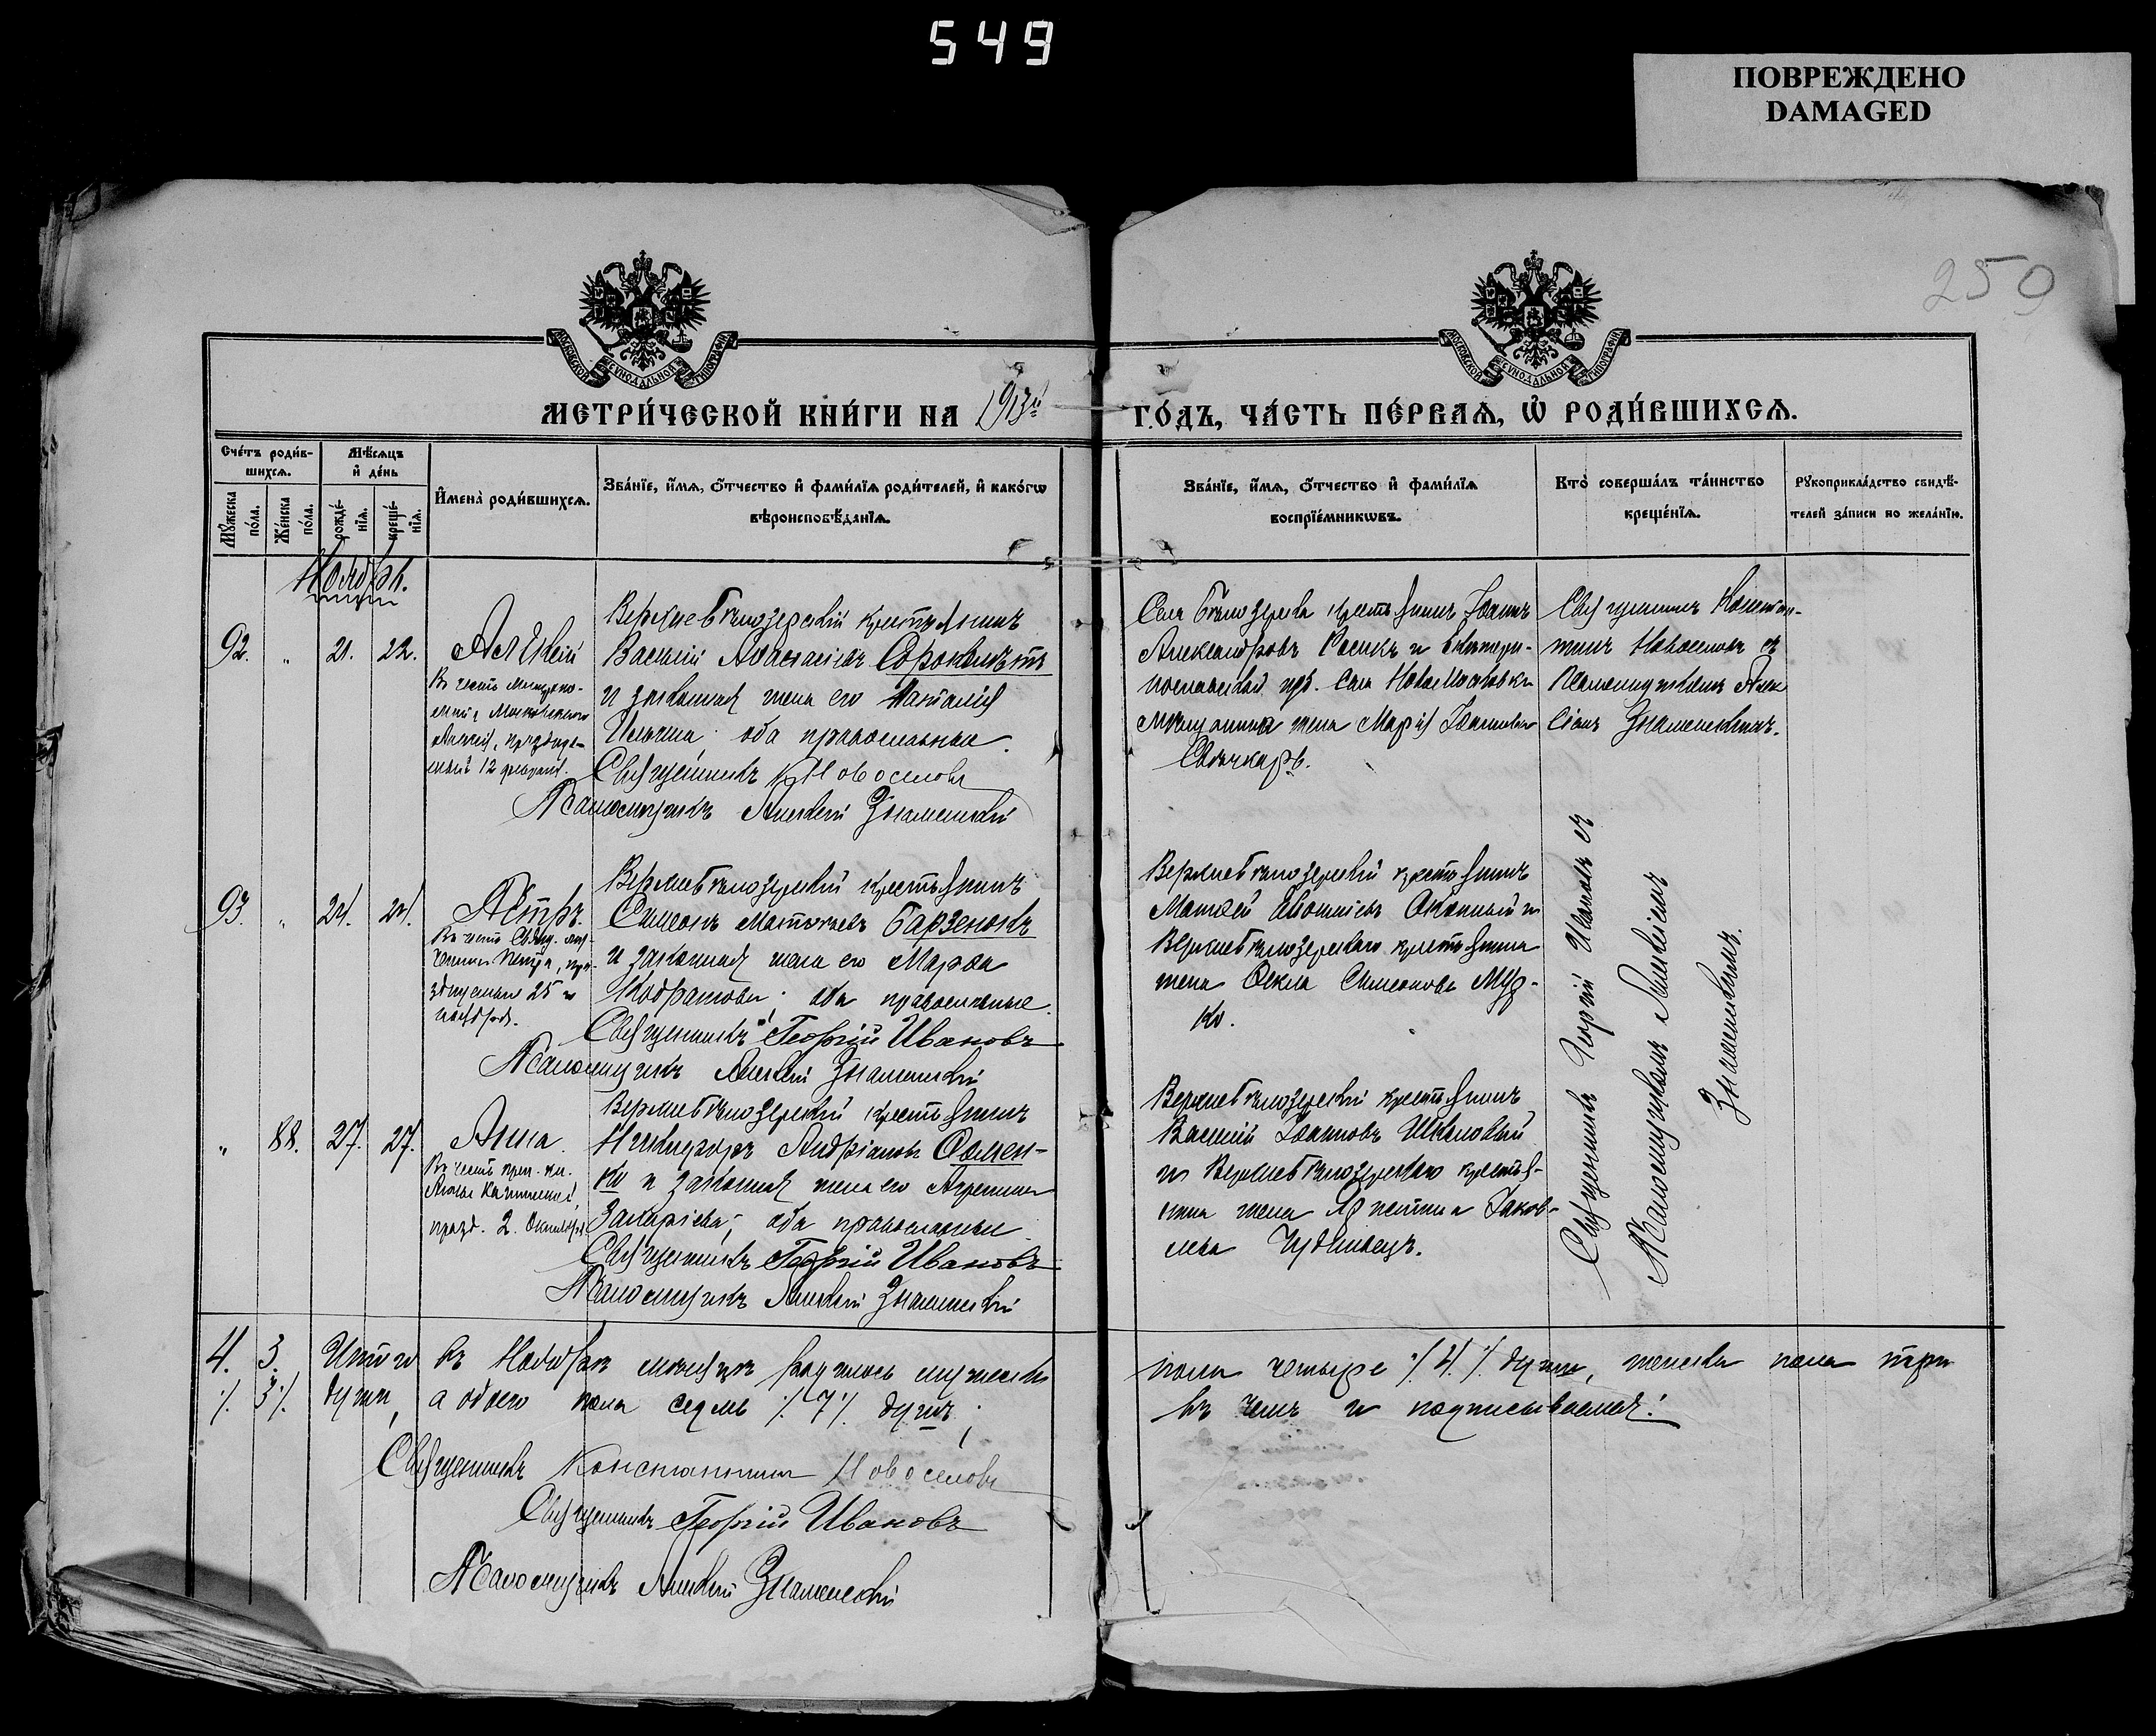 549
ПОВРЕЖДЕНО
DAMAGED
259
МОСКОВСКОЙ СѴНОДАЛЬНОЙ ТИПОГРАФІИ
МОСКОВСКОЙ СѴНОДАЛЬНОЙ ТИПОГРАФІИ
МЕТРИ́ЧЕСКОЙ КНИ́ГИ НА 1913й ГО́ДЪ, ЧА́СТЬ ПЕ́РВАѦ, Ѡ҆ РОДИ́ВШИХСѦ.
Сче́тъ роди́в-
шихсѧ.
Мѣ́сѧцъ
и҆ де́нь
Мꙋ́жеска
по́ла.
Же́нска
по́ла.
рожде́-
нїѧ.
креще́-
нїѧ.
И҆мена̀ роди́вшихсѧ.
Зва́нїе, и҆́мѧ, ѻ҆́тчество и҆ фами́лїѧ роди́телей, и҆ како́гѡ
вѣроисповѣ́данїѧ.
Зва́нїе, и҆́мѧ, ѻ҆́тчество и҆ фами́лїѧ
воспрїе́мникѡвъ.
Кто̀ соверша́лъ та́инство
креще́нїѧ.
Рꙋкоприкла́дство свидѣ́-
телей за́писи по жела́нїю.
Ноябрь.
92. " 21. 22.
Алексій
Въ честь Митропо-
лита Московскаго
Алексія, празднуе-
мый 12 февраля.
Верхнебѣлозерскій крестьянинъ
Василій Аѳанасіевъ Сороколѣтъ
и законная жена его Наталія
Ильина; оба православные.
Священникъ К Новоселовъ
Псаломщикъ Алексій Знаменскій
Села Бѣлозерка крестьянинъ Іоаннъ
Александровъ Косикъ и Екатери-
нославской губ. села Новомосковки
жена Марія Іоаннова
Свѣчкарь.
Священникъ Констан-
тинъ Новоселовъ съ
Псаломщикомъ Алек
сіемъ Знаменскимъ.
93. " 24. 24.
Петръ.
Въ честь Свящ. му-
ченика Петра, пра-
зднуемаго 25
ноября.
Верхнебѣлозерскій крестьянинъ
Симеонъ Матѳеевъ Барзенокъ
и законная жена его Марѳа
Кодратова; оба православные.
Священникъ Георгій Ивановъ
Псаломщикъ Алексій Знаменскій
Верхнебѣлозерскій крестьянинъ
Матвей Оконный и
Верхнебѣлозерскаго крестьянина
жена Ѳекла Симеонова Муд-
ко.
Священникъ Георгій Ивановъ съ
Псаломщикомъ Алексіемъ
Знаменскимъ.
" 88. 27. 27.
Анна.
Въ честь преп. кн.
Анны Кашинской,
празд. 2. Октября
Верхнебѣлозерскій крестьянинъ
Никифоръ Андріановъ Ѳомен-
ко и законная жена его Агрепина
Захаріева; оба православные.
Священникъ Георгій Ивановъ
Псаломщикъ Алексій Знаменскій
Верхнебѣлозерскій крестьянинъ
Василій Іоанновъ Шкаповый
и Верхнебѣлозерскаго крестья-
нина жена Іустина Іаков-
лева Чудновецъ.
4. 3. Итого въ Ноябрѣ мѣсяцѣ родилось мужеска пола четыре ·/.4.·/. души, женска пола три
·/. 3 ·/. души, а обоего пола седмь ·/.7·/. душъ; въ чемъ и подписываемся:
Священникъ Константинъ Новоселовъ
Священникъ Георгій Ивановъ
Псаломщикъ Алексій Знаменскій